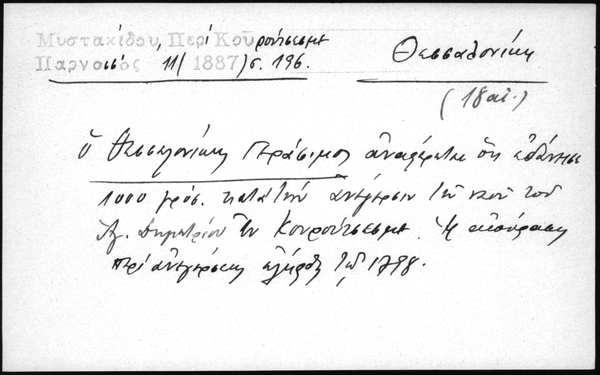 Μυστακίδου, Περὶ Κουρούτσεσμε
Παρνασσός 11 (1887) σ. 196.
Θεσσαλονίκη
(18 αἰ.)
ὁ Θεσσαλονίκης Γεράσιμος ἀναφέρεται ὅτι ἐδάνεισε
1000 γρόσ. κατὰ τὴν ἀνέγερσιν τοῦ ναοῦ τοῦ
Ἁγ. Δημητρίου ἐν Κουρούτσεσμε. Ἡ ἀπόφασις
περὶ ἀνεγέρσεως ἐλήφθη τῷ 1798.